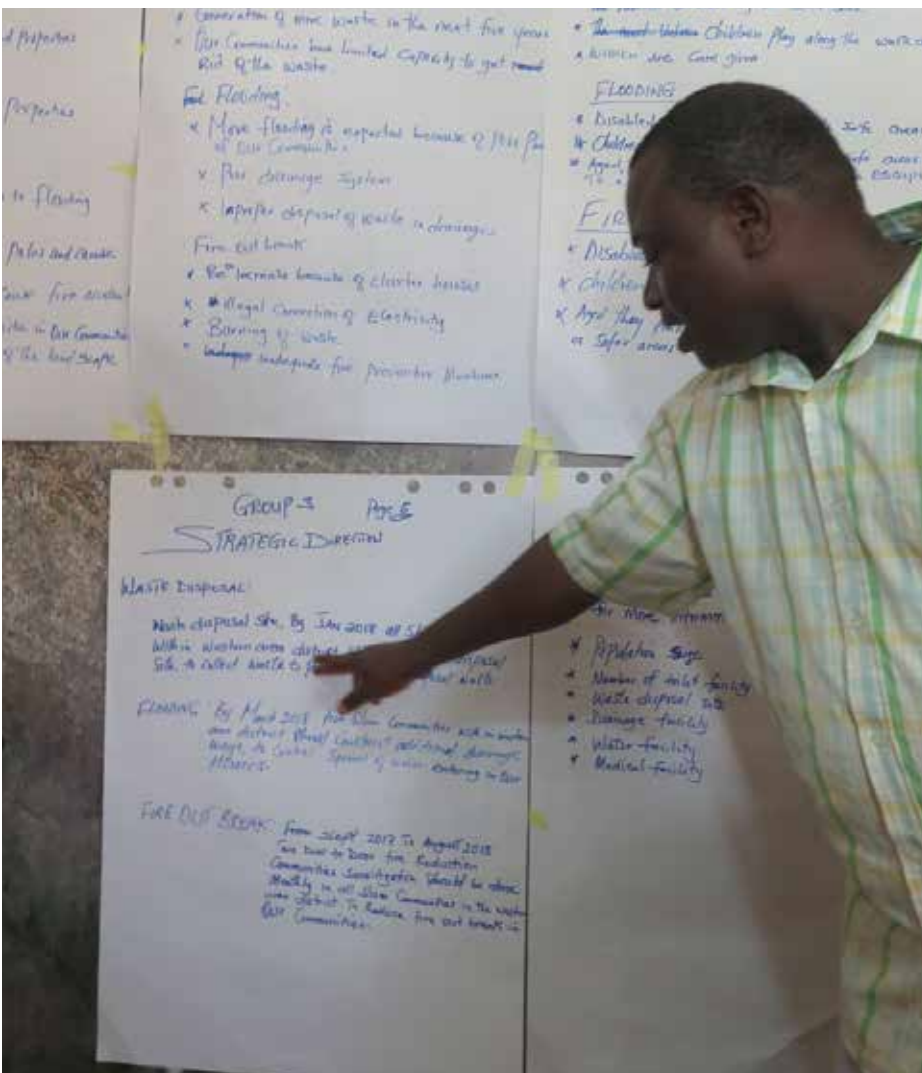 d properties
Properties
to flooding
Poles and candle
fire
in Our Communities
of the land scape
* Generation of more waste in the next five years
* Our Communities have limited capacity to get
Rid of the waste.
Flooding
* More flooding is expected because of
of Our Communities
x Poor drainage System
x Improper disposal of waste in drainages
Fire out break
* increase because of cluster houses
* illegal Connection of Electricity
* Burning of waste
* inadequate fire preventive
* Children Play along the
* women are Care giver
FLOODING
* Disabled
safe areas
* Children
areas
* Aged
FIR
* Disabled
* Children
* Aged they
or Safer areas
GROUP 3 Page 5
STRATEGIC DIRECTION
WASTE DISPOSAL:
Waste disposal Site, By JAN 2018 all
Within western area district disposal
Site, to collect waste to
FLOODING By March 2018 Slum Communities with in western
area district additional drainage
ways, to Control Spread of water entering in Our
FIRE OUT BREAK: from Sept 2017 To August 2018
Door to Door fire Reduction
Communities Sensitization Should be done
Monthly in all Slum Communities in the western
area district To Reduce fire out breaks in
Our Communities.
for More
* Population
* Number of toilet facility
* Waste disposal site
* Drainage facility
* Water facility
* Medical facility